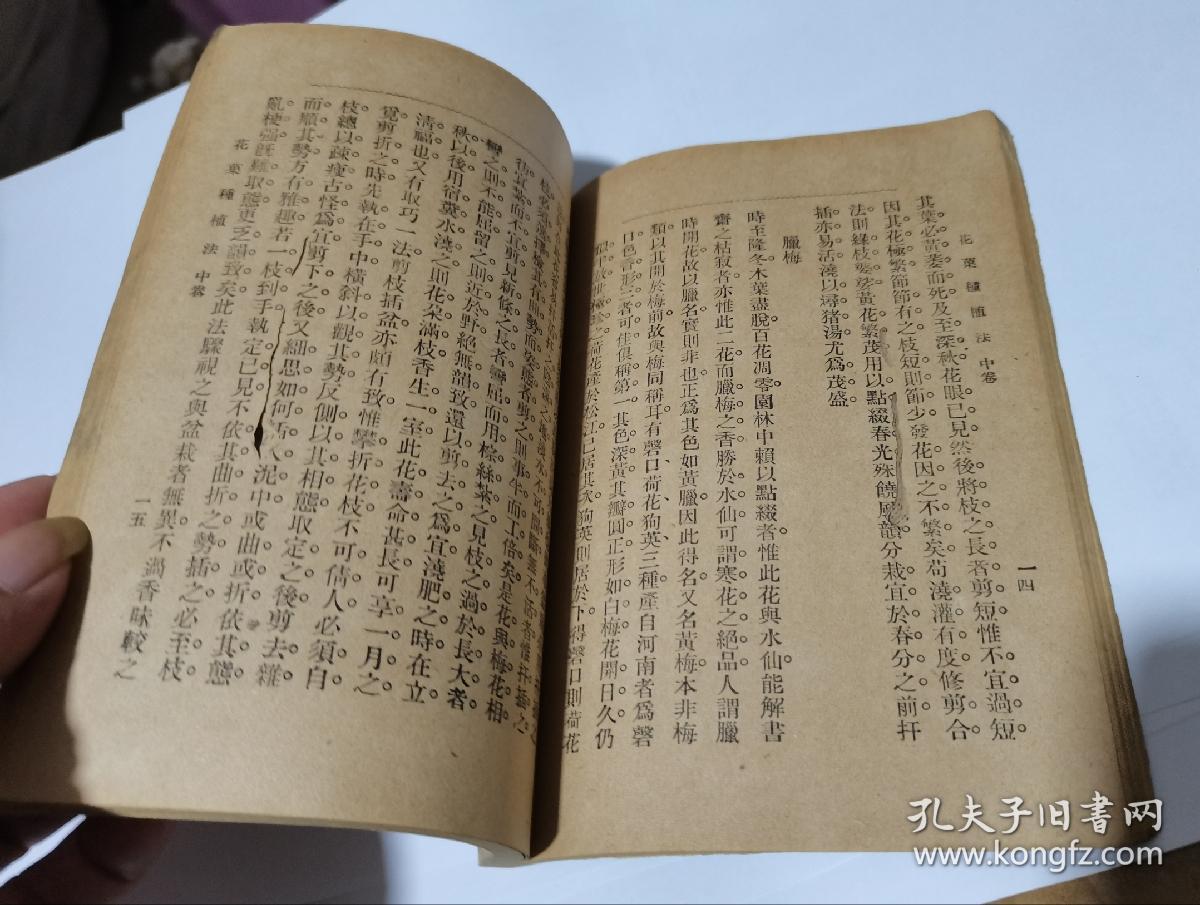 花菓種植法 中卷
一四
其葉必黃萎而死及至深秋花眼已見然後將枝之長者剪短惟不宜過短。
因其花極繁節節有之枝短則節少發花因之不繁矣茍澆灌有度修剪合
法則綠枝婆娑黃花繁茂用以點綴春光殊饒風韻分栽宜於春分之前扦
插亦易活澆以燖猪湯尤爲茂盛
臘梅
時至隆冬木葉盡脫百花凋零園林中賴以點綴者惟此花與水仙能解書
齋之枯寂者亦惟此二花而臘梅之香勝於水仙可謂寒花之絕品人謂臘
時開花故以臘名實則非也正爲其色如黃臘因此得名又名黃梅本非梅
類以其開於梅前故與梅同稱耳有磬口荷花狗英三種產自河南者爲磬
口色香形三者可佳俱稱第一其色深黃其瓣圓正形如白梅花開日久仍
荷花產於松江已居其次狗英則居於下得磬口則荷花
枝
而不宜剪見新條之長者彎屈而用棕絲紮之見枝之過於長大者
彎之則不能屈留之則近於野絕無韻致還以剪去之爲宜澆肥之時在立
秋以後用宿糞水澆之則花朵滿枝香生一室此花壽命甚長可享一月之
清福也又有取巧一法剪枝插盆亦頗有致惟攀折花枝不可倩人必須自
覓剪折之時先執在手中橫斜以觀其勢反側以其相態取定之後剪去雜
枝總以疎瘦古怪爲宜剪下之後又細思如何泥中或曲或折依其態
而順其勢方有雅趣若一枝到手執定已見不依其曲折之勢插之必至枝
亂梗强旣難取態更乏韻致矣此法驟視之與盆栽者無異不過香味較之
花菓種植法 中卷
一五
孔夫子旧书网
www.kongfz.com